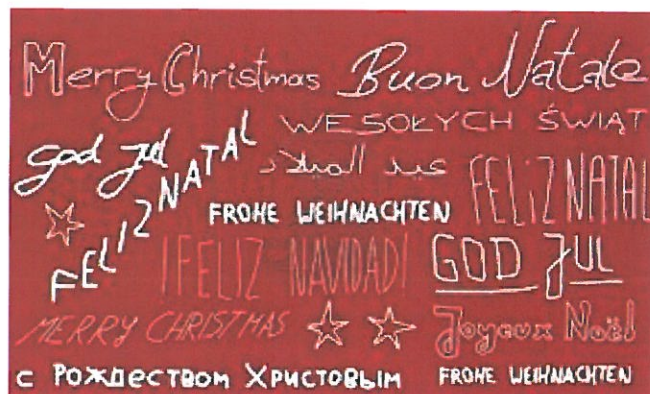 Merry Christmas Buon Natale
WESOŁYCH ŚWIĄT
god jul
عيد الميلاد
FELIZ NATAL
FELIZ NATAL
FROHE WEIHNACHTEN
¡FELIZ NAVIDAD!
GOD JUL
MERRY CHRISTMAS
Joyeux Noël
с Рождеством Христовым
FROHE WEIHNACHTEN